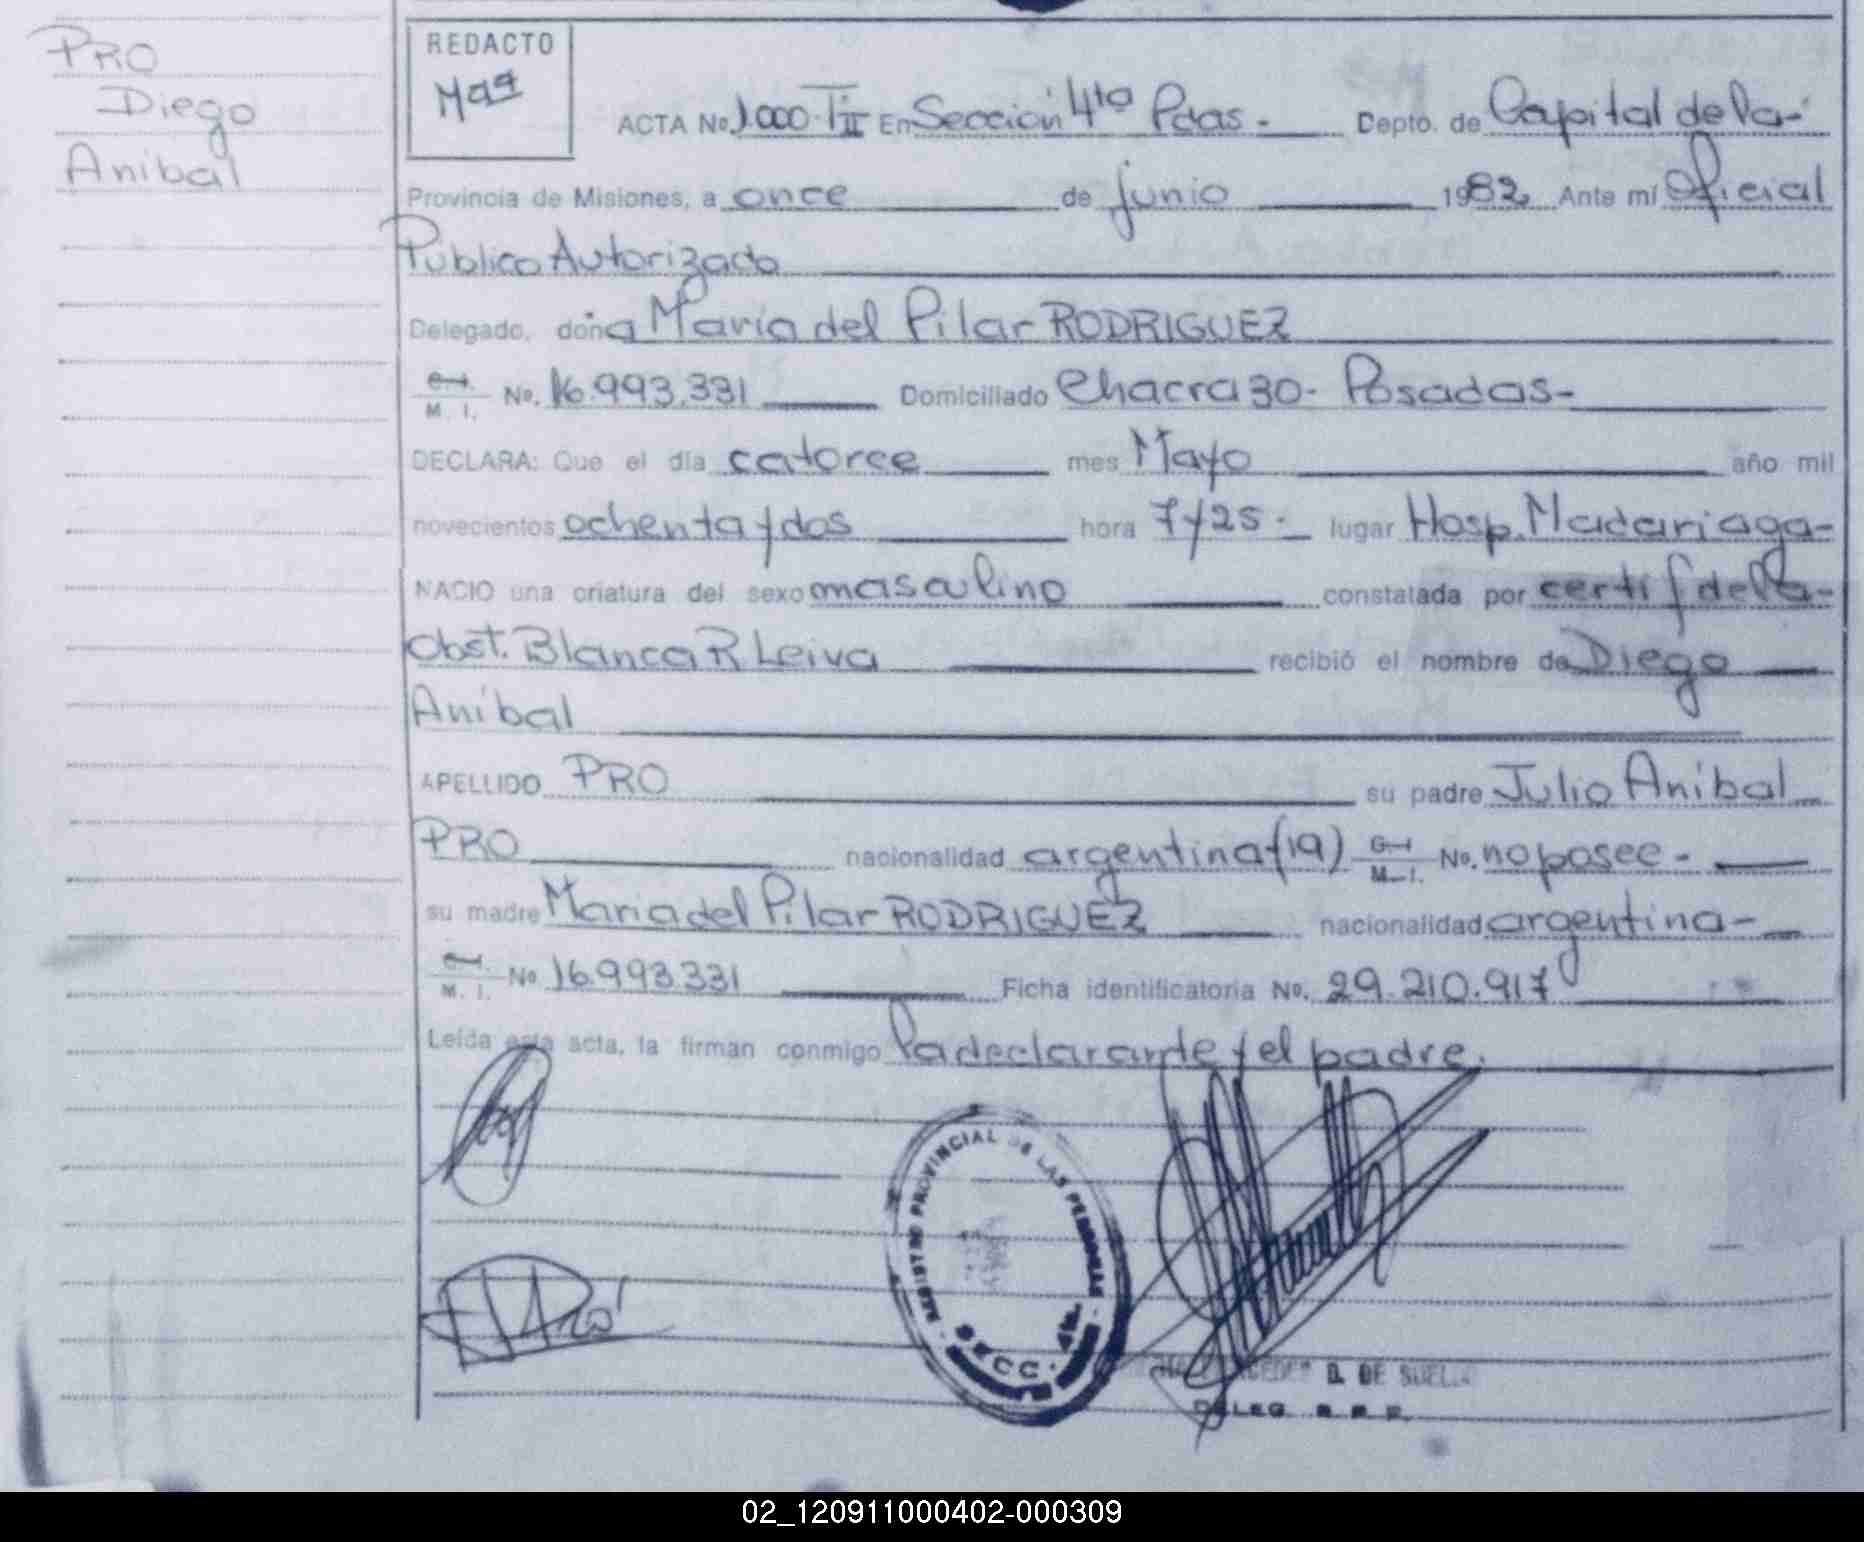 PRO
Diego
Anibal
REDACTO
ACTA No 1.000 T II En Sección 4ta Pdas. Depto. de Capital de la
Provincia de Misiones, a once de junio 1982 Ante mí Oficial
Público Autorizado
Delegado, doña María del Pilar RODRIGUEZ
C.I. M. I. No. 16.993.331 Domiciliado Chacra 30 - Posadas -
DECLARA: Que el día catorce mes Mayo año mil
novecientos ochenta y dos hora 7 y 25 - lugar Hosp. Madariaga -
NACIO una criatura del sexo masculino constatada por certif de la -
Obst. Blanca R Leiva recibió el nombre de Diego
Anibal
APELLIDO PRO su padre Julio Anibal
PRO nacionalidad argentina (19) C.I. M.I. No. no posee -
su madre María del Pilar RODRIGUEZ nacionalidad argentina -
C.I. M. I. No 16.993.331 Ficha identificatoria No. 29.210.917
Leída esta acta, la firman conmigo la declarante y el padre.
REGISTRO PROVINCIAL DE LAS PERSONAS
SECC. 4ta.
D. DE
DELEG. R. P. P.
02_120911000402-000309